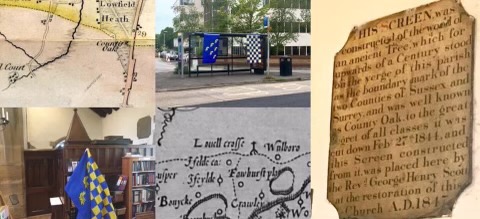 Lowfield
Heath
County
Oak
Court
Lowell crosse
Walboro
Ifelde
Ifyrlde
Fowhurst
Bouycke
Crawley
HIS SCREEN, was
constructed of the wood of
an ancient Tree, which for
upwards of a Century stood
on the verge of this parish
the boundary mark of the
two Counties of Sussex and
Surrey, and was well known
as County Oak, to the great
regret of all classes it was
cut down Feb 27th 1844, and
this Screen constructed
from it, was placed here by
the Revd George Henry Scott
on the restoration of the
Church A.D. 184